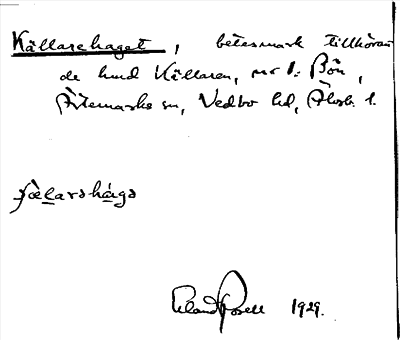 Källarehaget, betesmark tillhöran
de hmd Källaren, nr 1. Bön,
Ärtemarks sn, Vedbo hd, Älvsb. l.
Erland Rosell 1929.